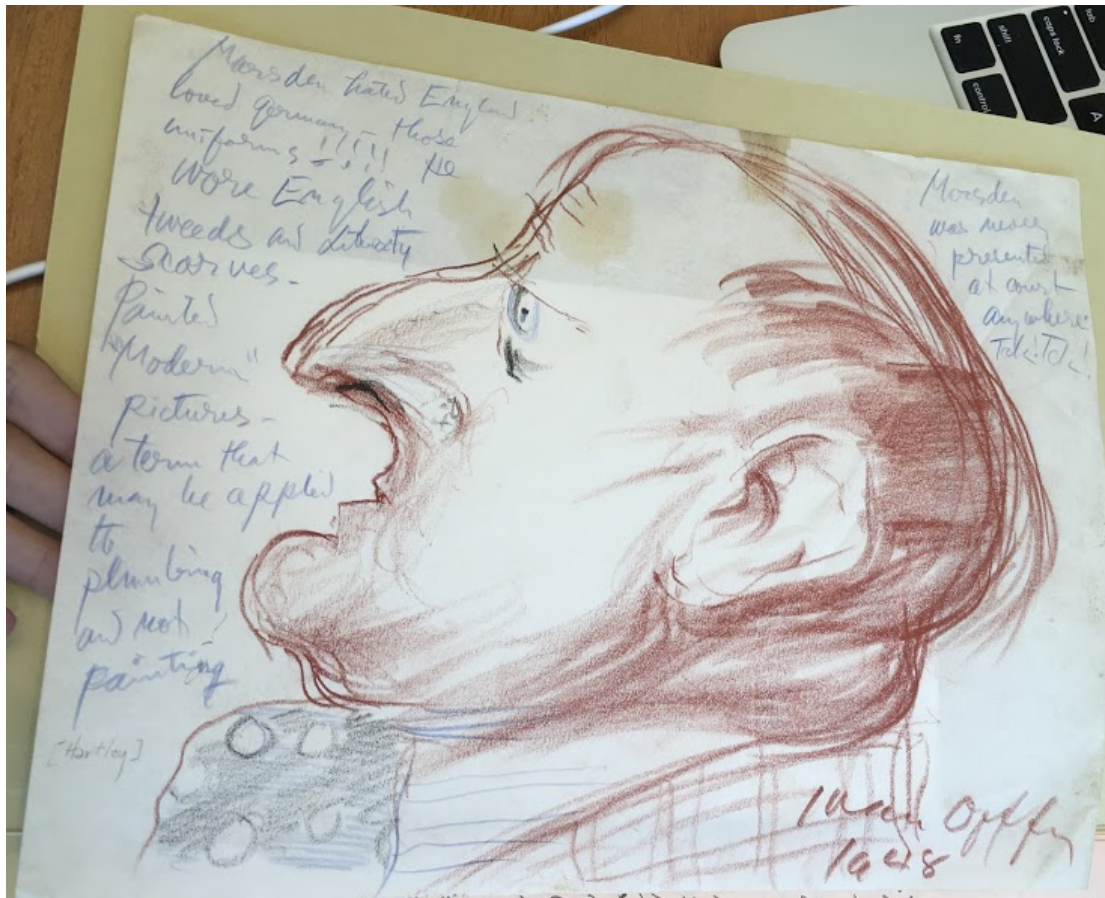 Marsden hated England
loved germany - those
uniforms - !!!! He
wore English
tweeds and Liberty
Scarves -
Painted
"Modern"
pictures -
a term that
may be applied
to
plumbing
and not
painting
[Hartley]
Marsden
was never
presented
at court
anywhere
Tsk! Tsk!
Ivan Opffer
Paris
fn
shift
caps lock
tab
control
A